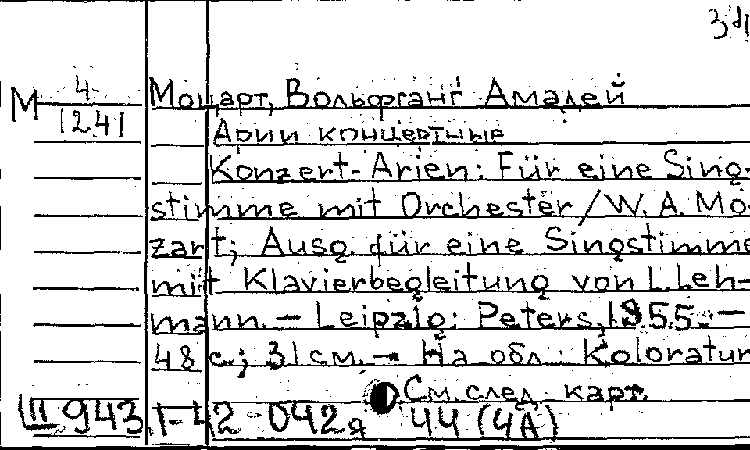 М 4
1241
Моцарт, Вольфганг Амадей
Арии концертные
Konzert-Arien: Für eine Sing-
stimme mit Orchester / W. A. Mo-
zart; Ausg. für eine Singstimme
mit Klavierbegleitung von L. Leh-
mann. — Leipzig: Peters, 1955. —
48 с.; 31 см. — На обл.: Koloratur
См. след. карт.
III 943 1-42 042я 44 (4А)